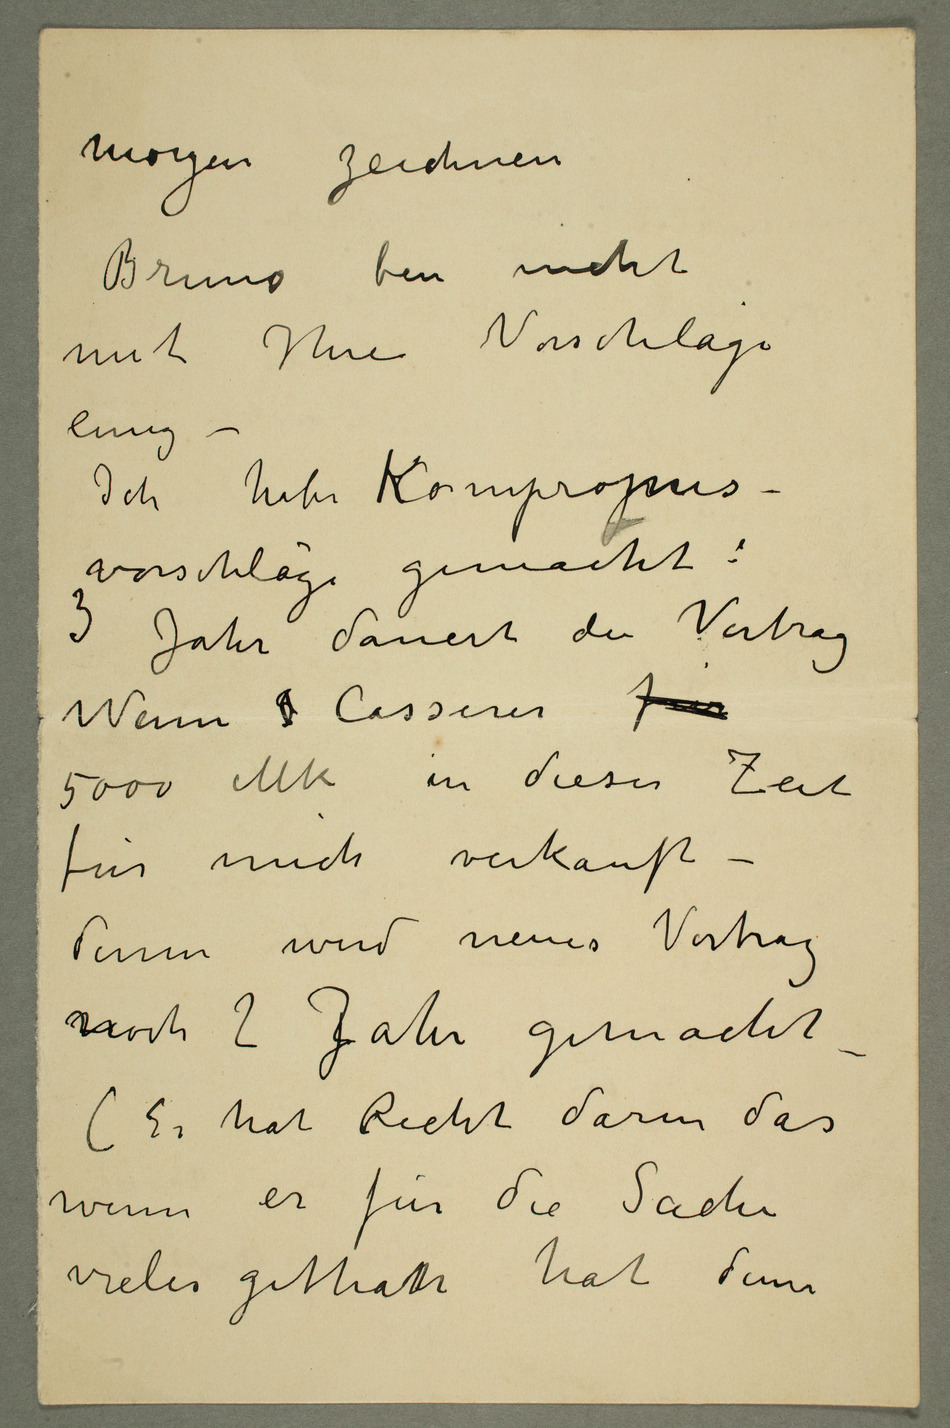 morgen zeichnen
Bruno ben nicht
mit Ihre Vorschläge
einig –
Ich habe Kompromis-
vorschläge gemacht :
3 Jahr dauert die Vertrag
Wenn Casserer für
5000 Mk in dieser Zeit
für mich verkauft –
denn wird neues Vertrag
noch 2 Jahr gemacht –
( Er hat Recht darin das
wenn er für die Sache
vieles gethan hat denn